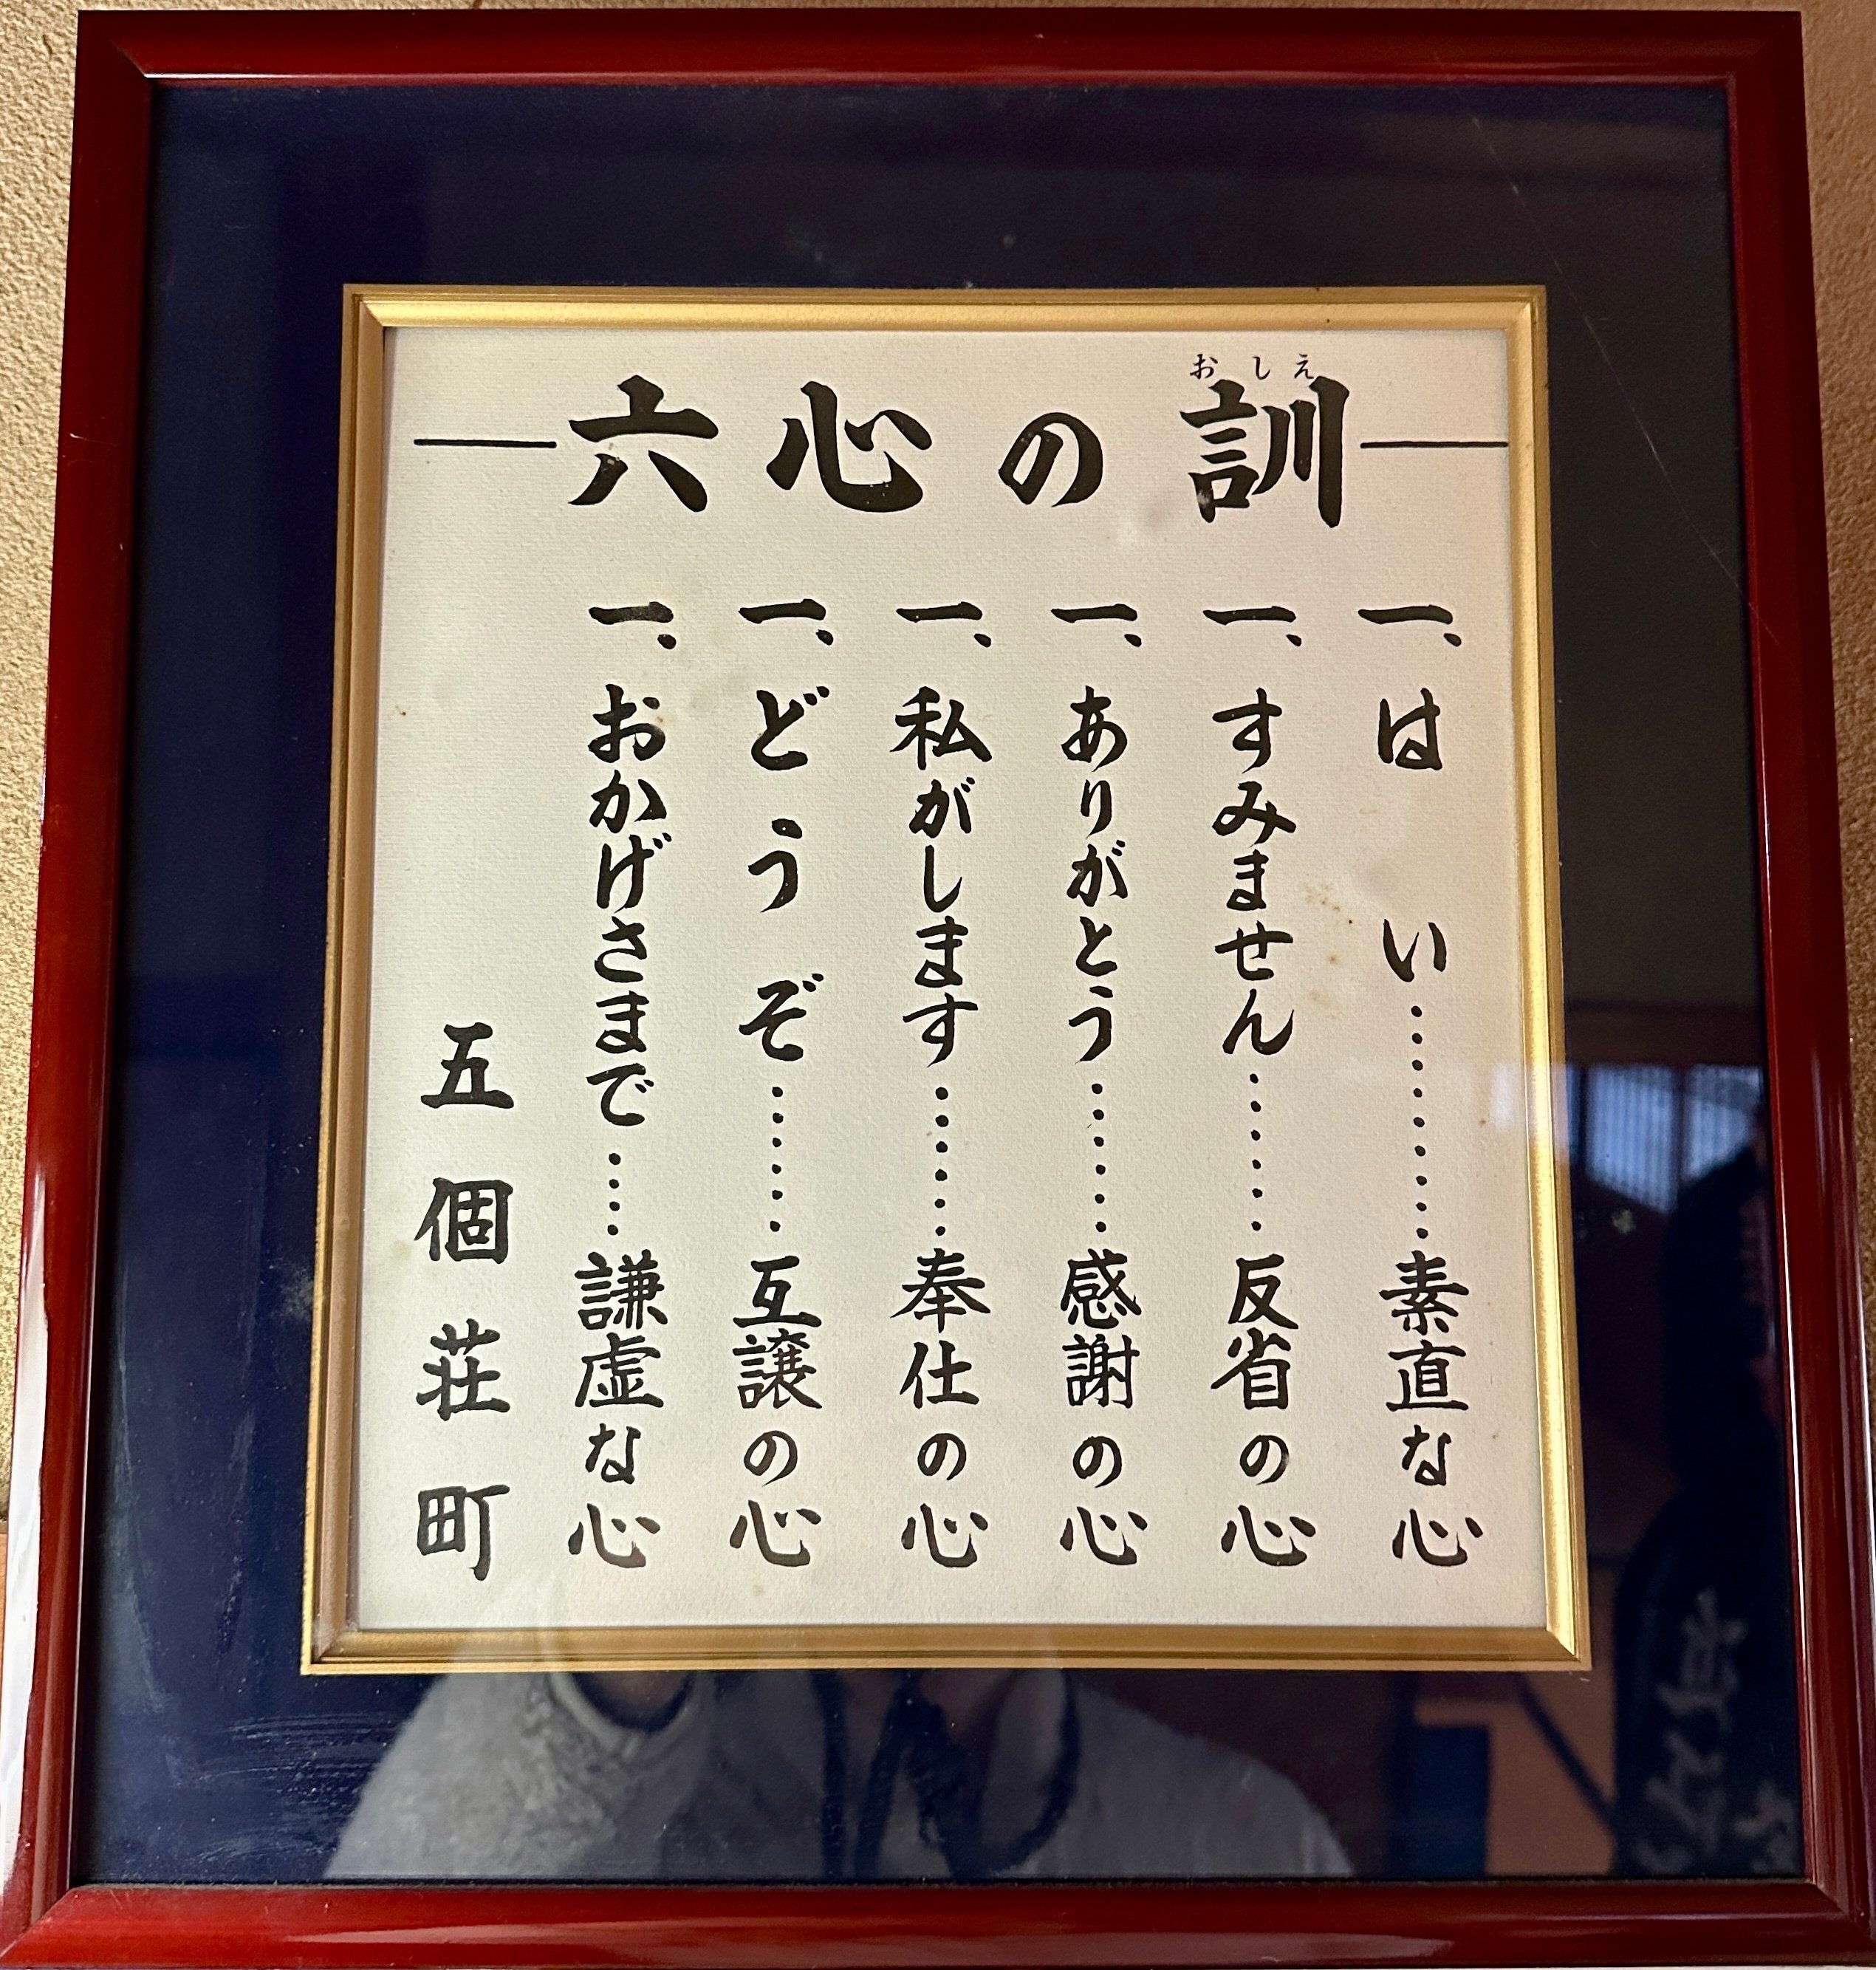 六心の訓
おしえ
一、はい…………素直な心
一、すみません……反省の心
一、ありがとう……感謝の心
一、私がします……奉仕の心
一、どうぞ……互譲の心
一、おかげさまで…謙虚な心
五個荘町